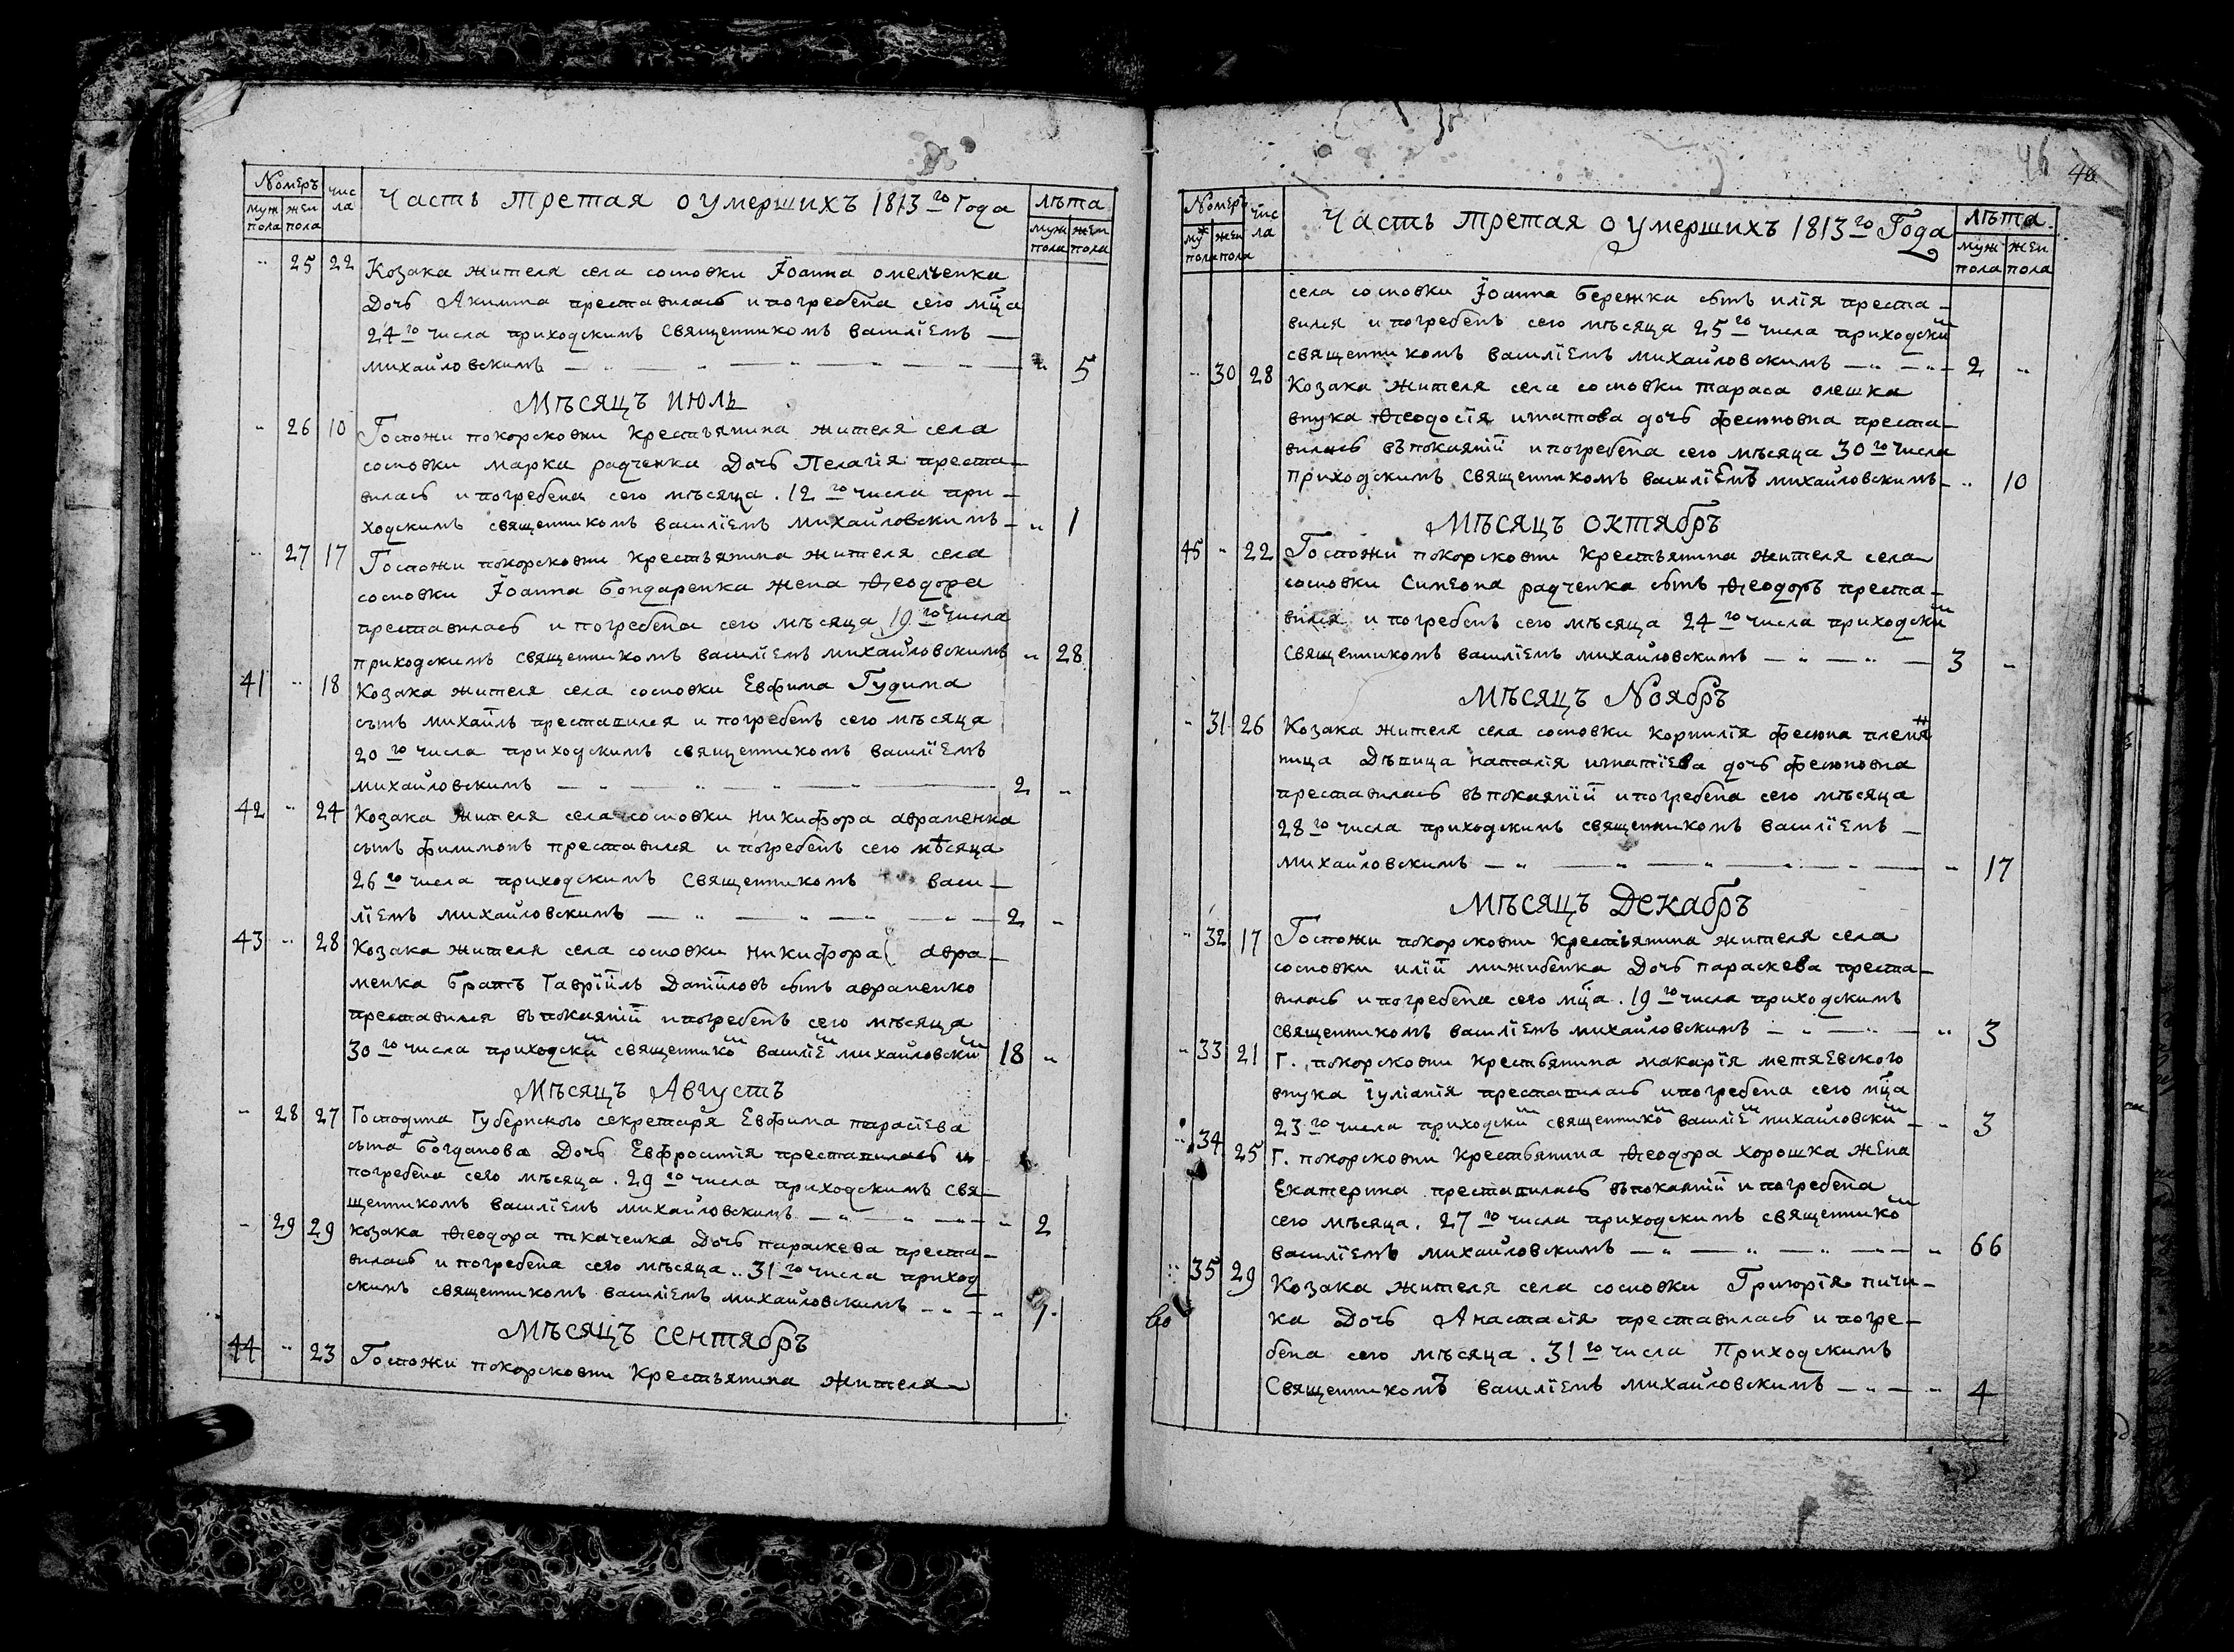 Номеръ
муж пола
жен пола
числа
Часть третая о умершихъ 1813 го Года
лѣта
муж пола
жен пола
25 22 Козака жителя села сосновки Іоанна омелченка
Дочь Акилина преставилась и погребена сего мца
24 го числа приходскимъ священникомъ василіемъ —
михайловскимъ 5
Мѣсяцъ июль
26 10 Госпожи покорсковни крестьянина жителя села
сосновки марка радченка Дочь Пелагія преста-
вилась и погребена сего мѣсяца. 12 го числа при-
ходскимъ священникомъ василіемъ михайловскимъ 1
27 17 Госпожи покорсковни крестьянина жителя села
сосновки Іоанна бондаренка жена Ѳеодора
преставилась и погребена сего мѣсяца 19 го числа
приходскимъ священникомъ василіемъ михайловскимъ 28
41 18 Козака жителя села сосновки Евфима Гудима
сынъ михаилъ преставился и погребенъ сего мѣсяца
20 го числа приходскимъ священникомъ василіемъ
михайловскимъ 2
42 24 Козака жителя села сосновки никифора авраменка
сынъ филимонъ преставился и погребенъ сего мѣсяца
26 го числа приходскимъ священникомъ васи-
ліемъ михайловскимъ 2
43 28 Козака жителя села сосновки никифора авра-
менка братъ Гавріилъ Даніиловъ сынъ авраменко
преставился въ покаяніи и погребенъ сего мѣсяца
30 го числа приходски священнико василіе михайловски 18
Мѣсяцъ Августъ
28 27 Господина Губернского секретаря Евфима тарасіева
сына богданова Дочь Евфросинія преставилась и
погребена сего мѣсяца. 29 го числа приходскимъ свя-
щенникомъ василіемъ михайловскимъ 2
29 29 козака Ѳеодора ткаченка Дочь параскева преста-
вилась и погребена сего мѣсяца.. 31 го числа приход
скимъ священникомъ василіемъ михайловскимъ
Мѣсяцъ сентябрь
44 23 Госпожи покорсковни крестьянина жителя
46 46
Номеръ
муж пола
жен пола
числа
Часть третая о умершихъ 1813 го Года
лѣта
муж пола
жен пола
села сосновки Іоанна бережка сынъ илія преста-
вился и погребенъ сего мѣсяца 25 го числа приходски
священникомъ василіемъ михайловскимъ 2
30 28 Козака жителя села сосновки тараса олешка
внука Ѳеодосія игнатова дочь фесюновна преста-
вилась въ покаяніи и погребена сего мѣсяца 30 го числа
приходскимъ священникомъ василіемъ михайловскимъ 10
Мѣсяцъ октябрь
45 22 Госпожи покорсковни крестьянина жителя села
сосновки Симеона радченка сынъ Ѳеодоръ преста-
вился и погребенъ сего мѣсяца 24 го числа приходски
священникомъ василіемъ михайловскимъ 3
Мѣсяцъ Ноябрь
31 26 Козака жителя села сосновки корнилія фесюна племян
ница Дѣвица наталія игнатіева дочь фесюновна
преставилась въ покаяніи и погребена сего мѣсяца
28 го числа приходскимъ священникомъ василіемъ —
михайловскимъ 17
Мѣсяцъ Декабрь
32 17 Госпожи покорсковни крестьянина жителя села
сосновки иліи мижибенка Дочь параскева преста-
вилась и погребена сего мца. 19 го числа приходскимъ
священникомъ василіемъ михайловскимъ 3
33 21 Г. покорсковни крестьянина макарія метяевского
внука Іуліанія преставилась и погребена сего мца
23 го числа приходски священнико василіе михайловски 3
34 25 Г. покорсковни крестьянина Ѳеодора хорошка жена
Екатерина преставилась въ покаяніи и погребена
сего мѣсяца. 27 го числа приходскимъ священнико
василіемъ михайловскимъ 66
35 29 Козака жителя села сосновки Григорія пичи-
ка Дочь Анастасія преставилась и погре-
бена сего мѣсяца. 31 го числа Приходскимъ
Священникомъ василіемъ михайловскимъ 4